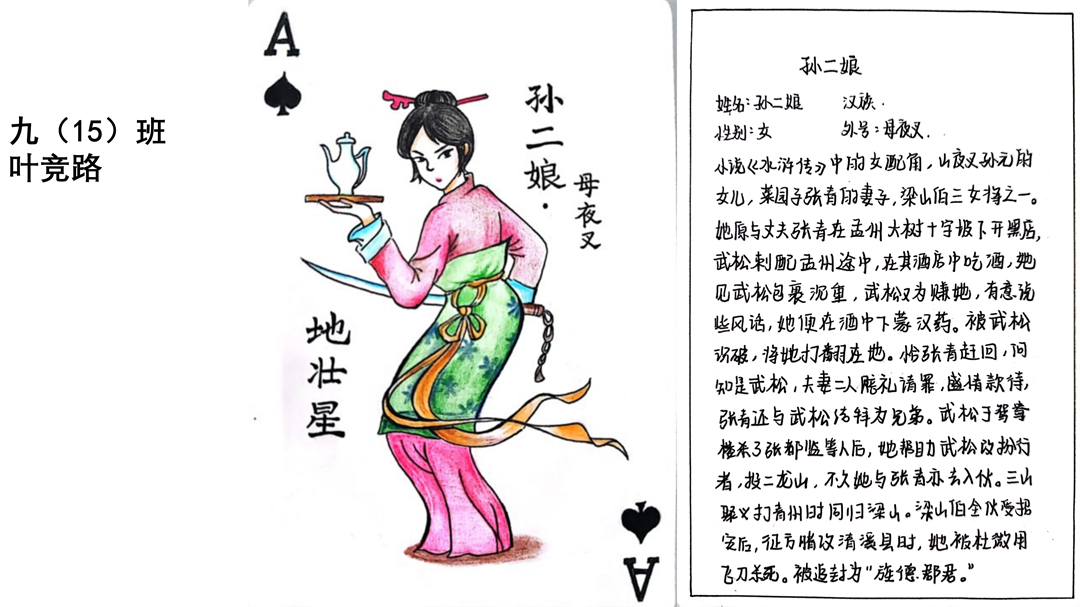 九（15）班
叶竞路
A
孙二娘·
母夜叉
地壮星
A
孙二娘
姓名：孙二娘 汉族.
性别：女 外号：母夜叉.
小说《水浒传》中的女配角，山夜叉孙元的
女儿，菜园子张青的妻子，梁山伯三女将之一。
她原与丈夫张青在孟州大树十字坡下开黑店，
武松刺配孟州途中，在其酒店中吃酒，她
见武松包裹沉重，武松又为赚她，有意说
些风话，她便在酒中下蒙汉药。被武松
识破，将她打翻在地。恰张青赶回，问
知是武松，夫妻二人赔礼请罪，盛情款待，
张青还与武松结拜为兄弟。武松于鸳鸯
楼杀了张都监等人后，她帮助武松改扮行
者，投二龙山，不久她与张青亦去入伙。三山
聚义打青州时同归梁山。梁山伯全伙受招
安后，征方腊攻清溪县时，她被杜微用
飞刀杀死。被追封为“旌德郡君。”